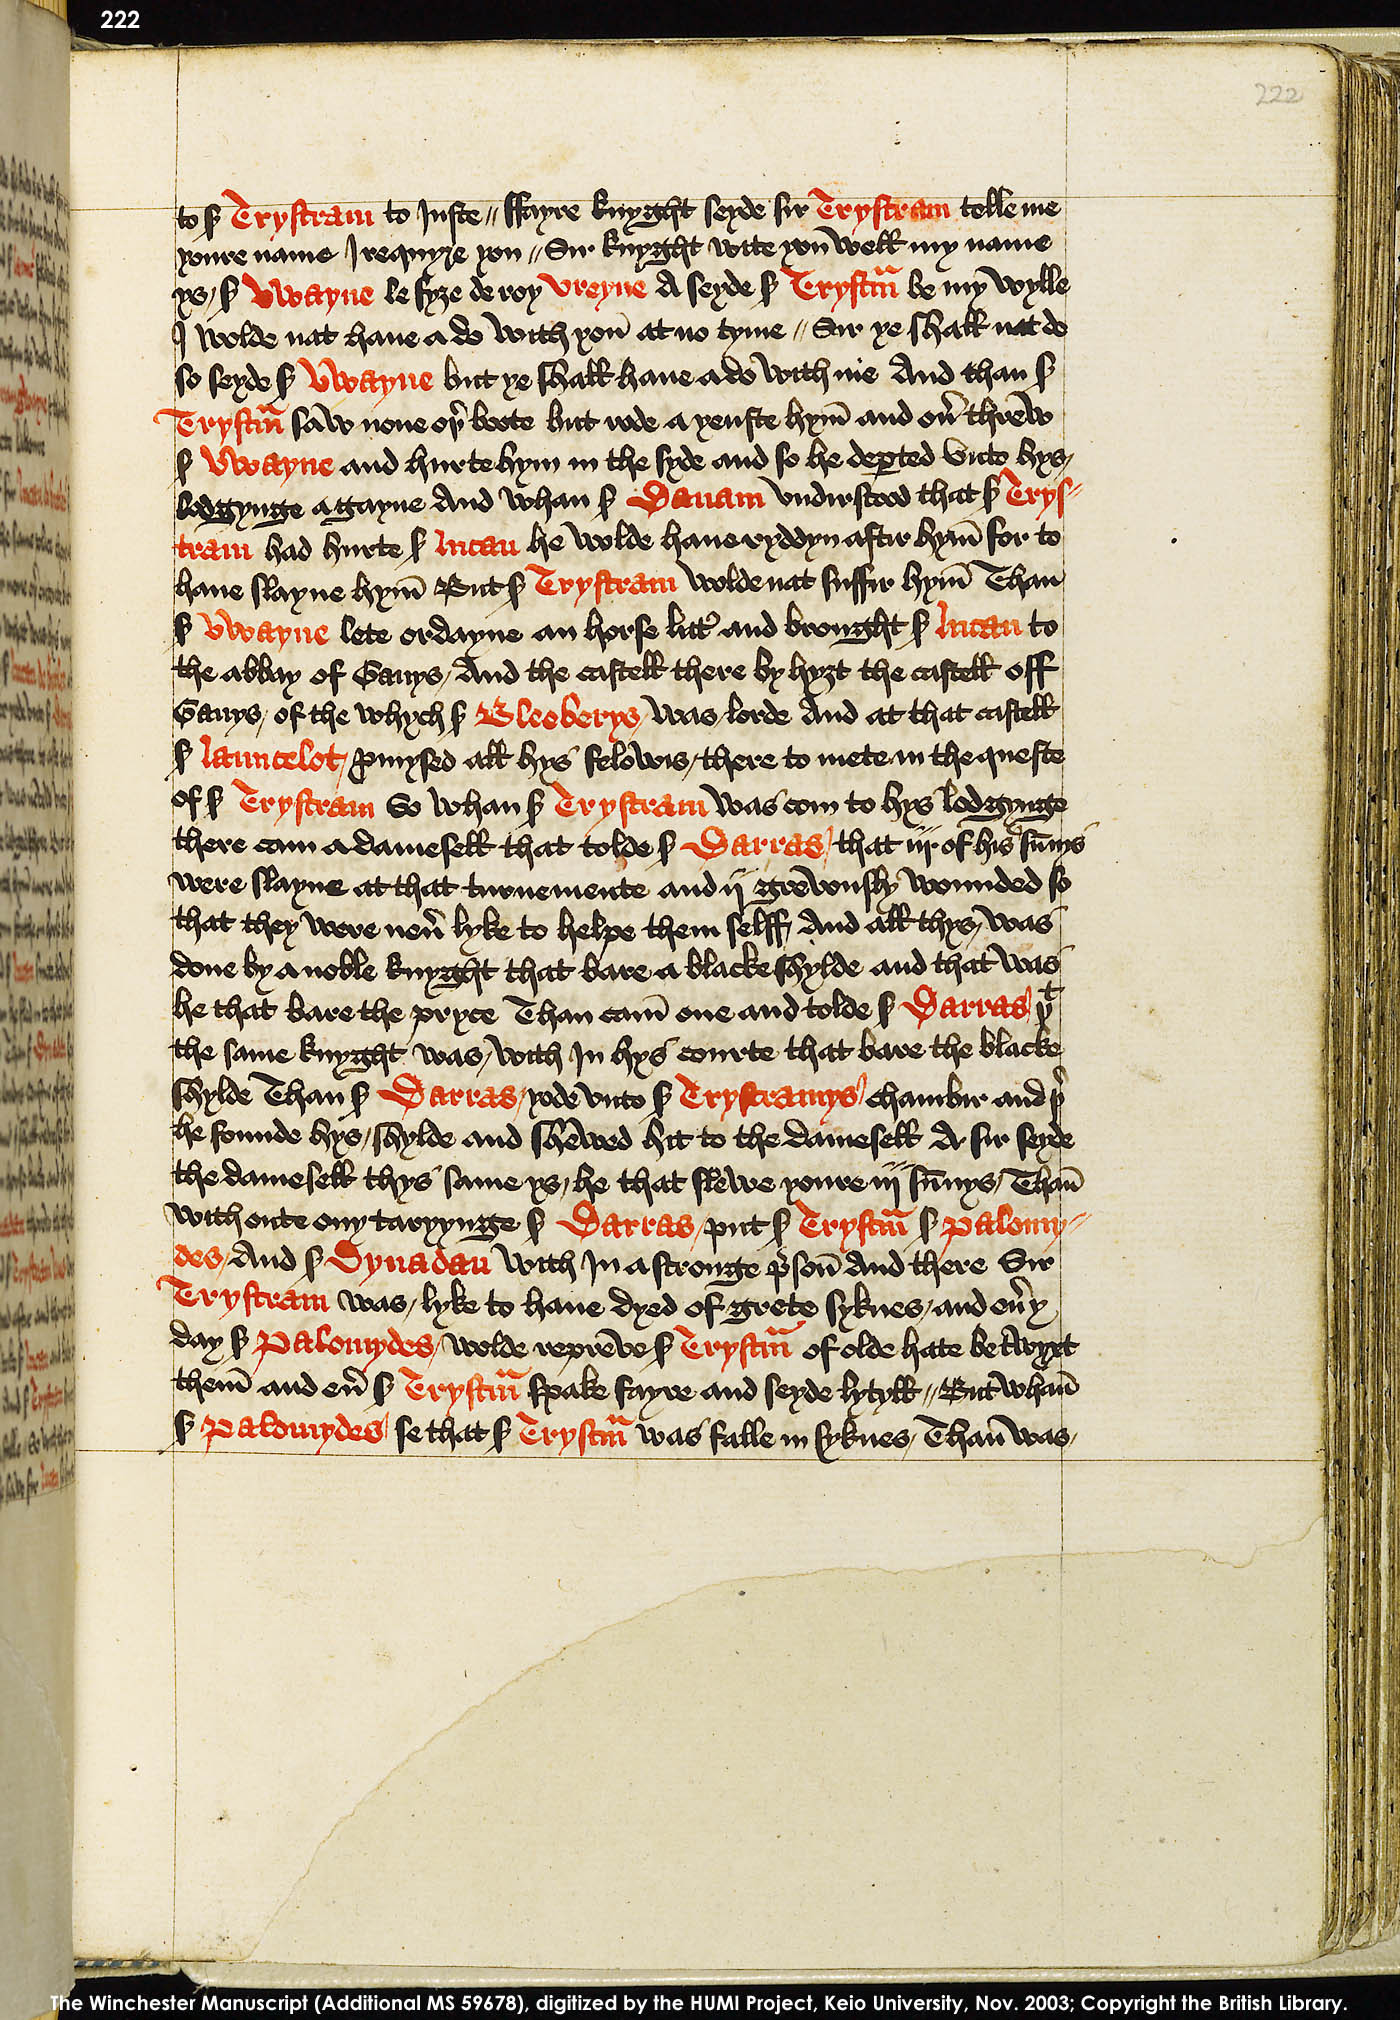 222
222
to ẜ Trystram to Juste // ffayre knyght seyde sir Trystram telle me
youre name J requyre you // Sir knyght wite you well my name
ys / ẜ Vwayne le fyze de roy Vreyne A seyde ẜ Trystm̃ be my wylle
J wolde nat haue a do with you at no tyme // Sir ye shall nat do
so seyde ẜ Vwayne but ye shall haue ado with me And than ẜ
Trystm̃ saw none oþ̉ boote but rode a yenste hym̄ and oủ threw
ẜ Vwayne and hurte hym in the syde and so he dep̱ted Vnto hys /
lodgynge agayne And whan ẜ Danam vndirstood that ẜ Trys=
tram had hurte ẜ lucan he wolde haue ryddyn aftir hym̄ for to
haue slayne hym̄ But ẜ Trystram wolde nat suffir hym̄ Than
ẜ Vwayne lete ordayne an horse litt̉ and brought ẜ lucan to
the abbay of Ganys / And the castell there by hyzt the castell off
Ganys / of the whych ẜ Bleoberys / was lorde And at that castell
ẜ launcelot / ꝓmysed all hys felowis / there to mete in the queste
of ẜ Trystram So whan ẜ Trystram was com to hys lodgynge
there cam a damesell that tolde ẜ Darras / that iij of his sūnys
were slayne at that turnemente and ij grevously wounded so
that they were neủ lyke to helpe them selff / And all thys / was
done by a noble knyght that bare a blacke shylde and that was
he that bare the pryce Than cam̄ one and tolde ẜ Darras þᵗ
the same knyght was / with Jn hys courte that bare the blacke
shylde Than ẜ Darras / yode vnto ẜ Trystramys / chambir and þ̉
he founde hys / shylde and shewed hit to the damesell A sir seyde
the damesell thys same ys / he that slewe youre iij sūnys / Thañ
with oute ony taryynge ẜ Darras / put ẜ Trystm̃ ẜ palomy=
des / And ẜ Dynadan with Jn a stronge p̉soñ And there Sir
Trystram was / lyke to haue dyed of grete syknes / and eủy
day ẜ Palomydes / wolde repreve ẜ Trystm̃ of olde hate betwyxt
them̄ and eủ ẜ Trystm̃ spake fayre and seyde lytyll // But whañ
ẜ Palomydes / se that ẜ Trystm̃ was falle in syknes / Thañ was /
The Winchester Manuscript (Additional MS 59678), digitized by the HUMI Project, Keio University, Nov. 2003; Copyright the British Library.